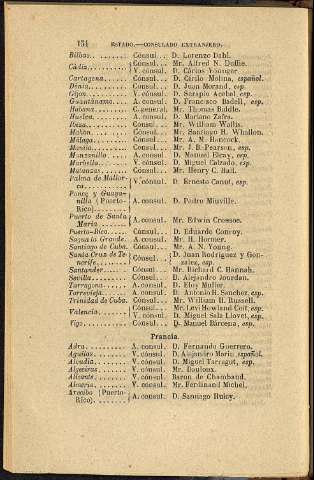 134 ESTADO.—CONSULADO EXTRANJERO.
Bilbao........ Cónsul... D. Lorenzo Dahl.
Cádiz........ Cónsul... Mr. Alfred N. Duffie.
V. cónsul. D. Cárlos Younger.
Cartagena..... Cónsul... D. Cirilo Molina, español.
Dénia......... Cónsul... D. Juan Morand, esp.
Gijon......... V. cónsul. D. Sarapio Acebal, esp.
Guantánamo.... A. cónsul. D. Francisco Badell, esp.
Habana........ C. general. Mr. Thomas Biddle.
Huelva........ A. cónsul. D. Mariano Zafra.
Ibiza......... Cónsul... Mr. William Wallis.
Mahon......... Cónsul... Mr. Santiago H. Whallon.
Málaga........ Cónsul... Mr. A. M. Hancock.
Manila........ Cónsul... Mr. J. B. Pearson, esp.
Manzanillo.... A. cónsul. D. Manuel Elcay, esp.
Marbella...... V. cónsul. D. Miguel Calzado, esp.
Matanzas...... Cónsul... Mr. Henry C. Hall.
Palma de Mallor-
ca........ V. cónsul. D. Ernesto Canut, esp.
Ponce y Guaya-
nilla (Puerto- A. cónsul. D. Pedro Minville.
Rico)........
Puerto de Santa
María........ A. cónsul. Mr. Edwin Crossoe.
Puerto-Rico... Cónsul... D. Eduardo Conroy.
Sagua la Grande. A. cónsul. Mr. H. Horner.
Santiago de Cuba. Cónsul... Mr. A. N. Young.
Santa Cruz de Te- Cónsul... D. Juan Rodriguez y Gon-
nerife........ zalez, esp.
Santander..... Cónsul... Mr. Richard C. Hannah.
Sevilla....... Cónsul... D. Alejandro Jourdan.
Tarragona..... A. cónsul. D. Eloy Muller.
Torrevieja.... A. cónsul. D. Antonio H. Sanchez, esp.
Trinidad de Cuba. Cónsul... Mr. William H. Russell.
Valencia...... Cónsul... Mr. Levi Howland Coit, esp.
V. cónsul. D. Miguel Sala Llovet, esp.
Vigo.......... Cónsul... D. Manuel Bárcena, esp.
Francia.
Adra.......... A. cónsul. D. Fernando Guerrero.
Aguilas....... V. cónsul. D. Alejandro Marin, español.
Alcudia....... V. cónsul. D. Miguel Tarragot, esp.
Algeciras..... V. cónsul. Mr. Bouloux.
Alicante...... V. cónsul. Baron de Chambaud.
Almería....... V. cónsul. Mr. Ferdinand Michel.
Arecibo (Puerto- A. cónsul. D. Santiago
Rico)........